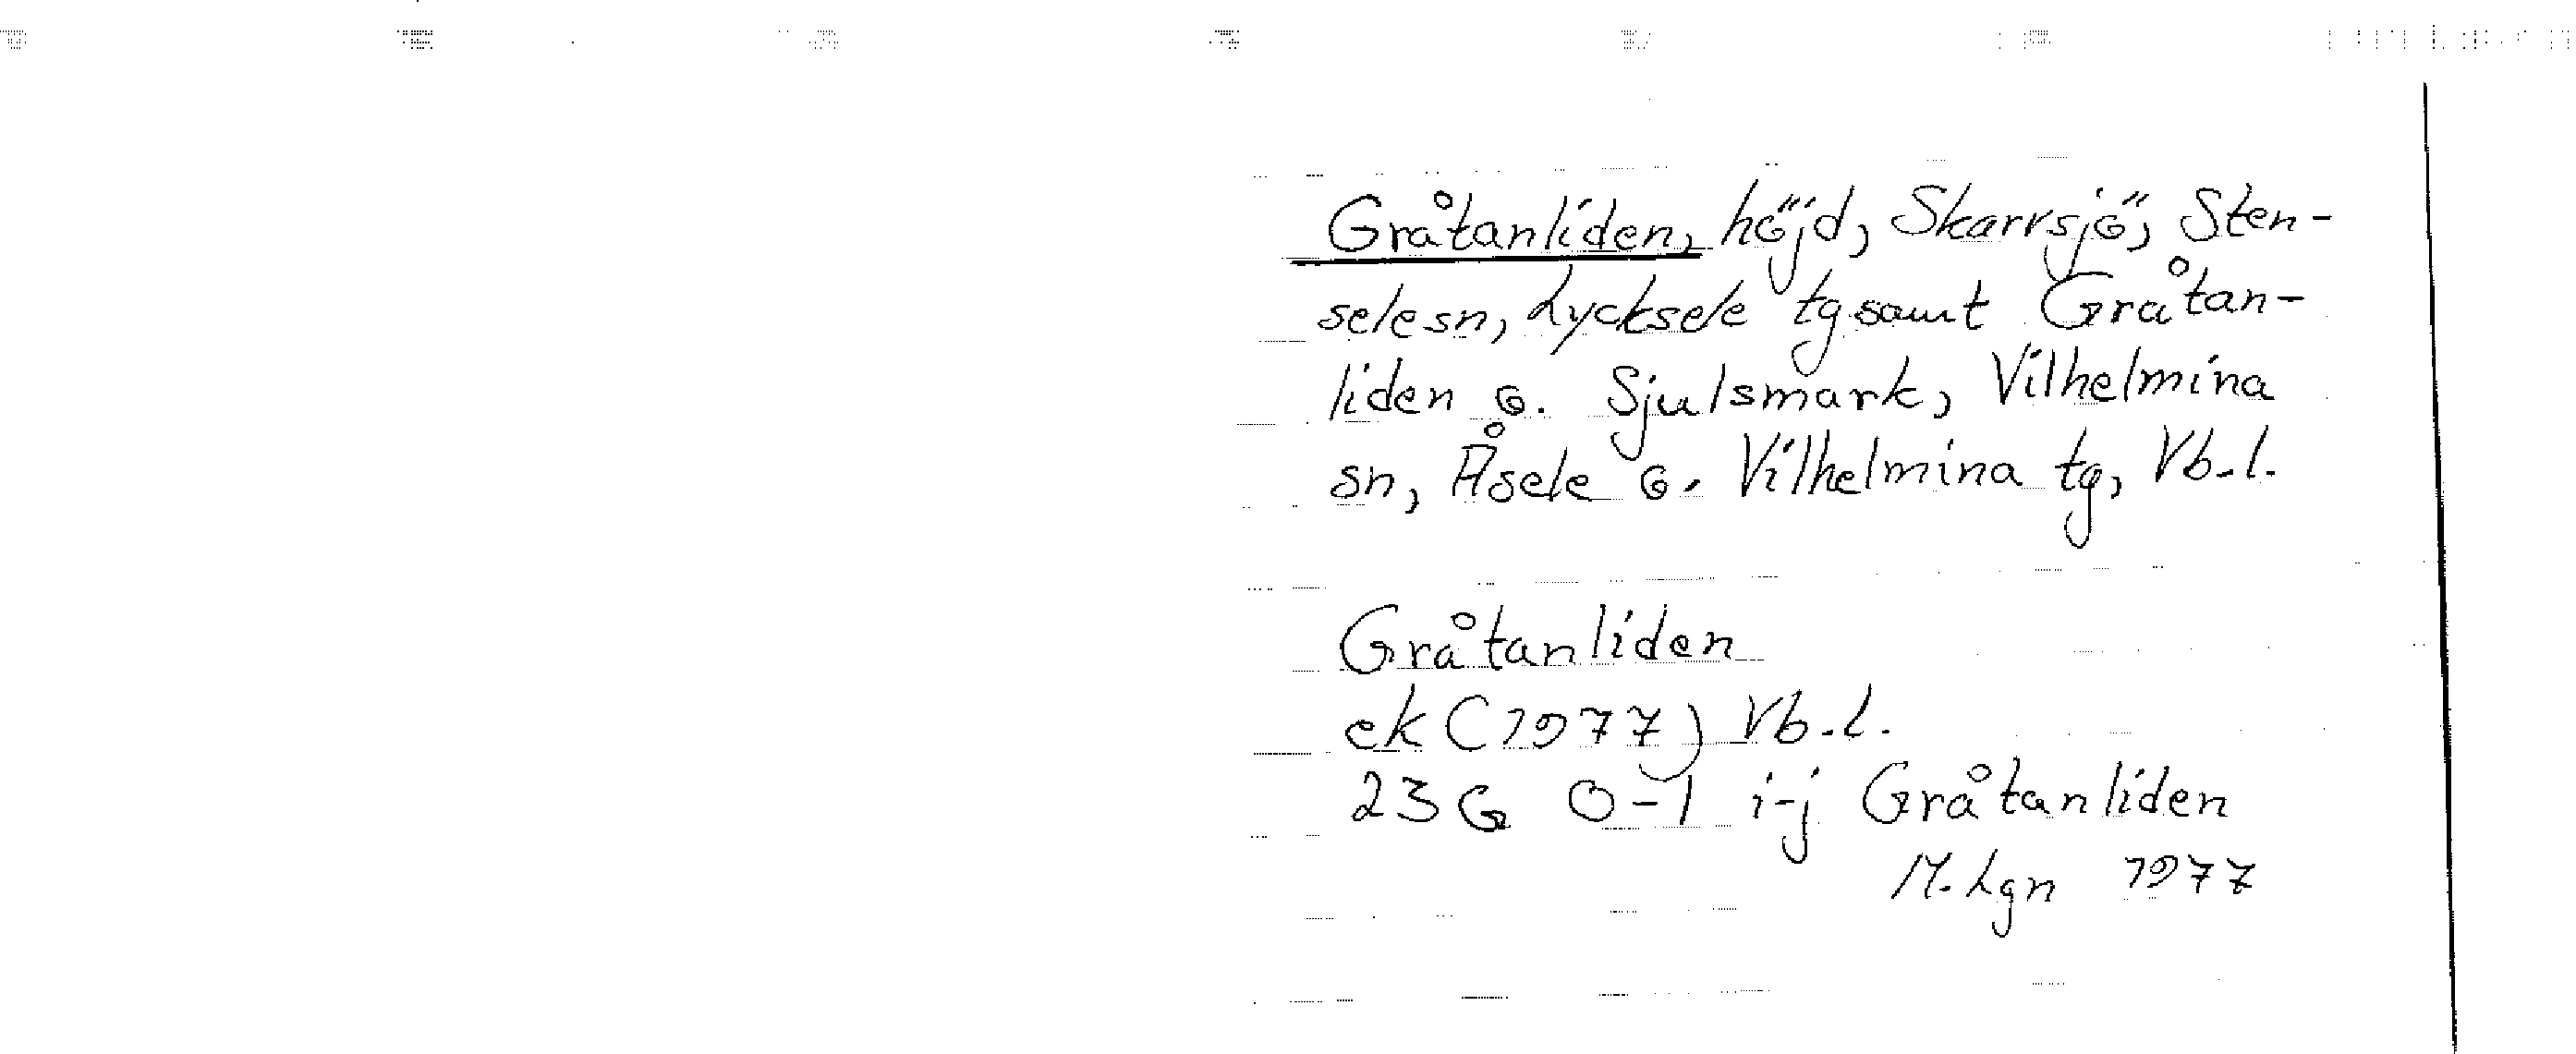 Gråtanliden, höjd, Skarvsjö, Sten-
sele sn, Lycksele tg samt Gråtan-
liden o. Sjulsmark, Vilhelmina
sn, Åsele o. Vilhelmina tg, Vb. l.
Gråtanliden
ek (1977) Vb. l.
23 G 0-1 i-j Gråtanliden
M. Lgn 1977